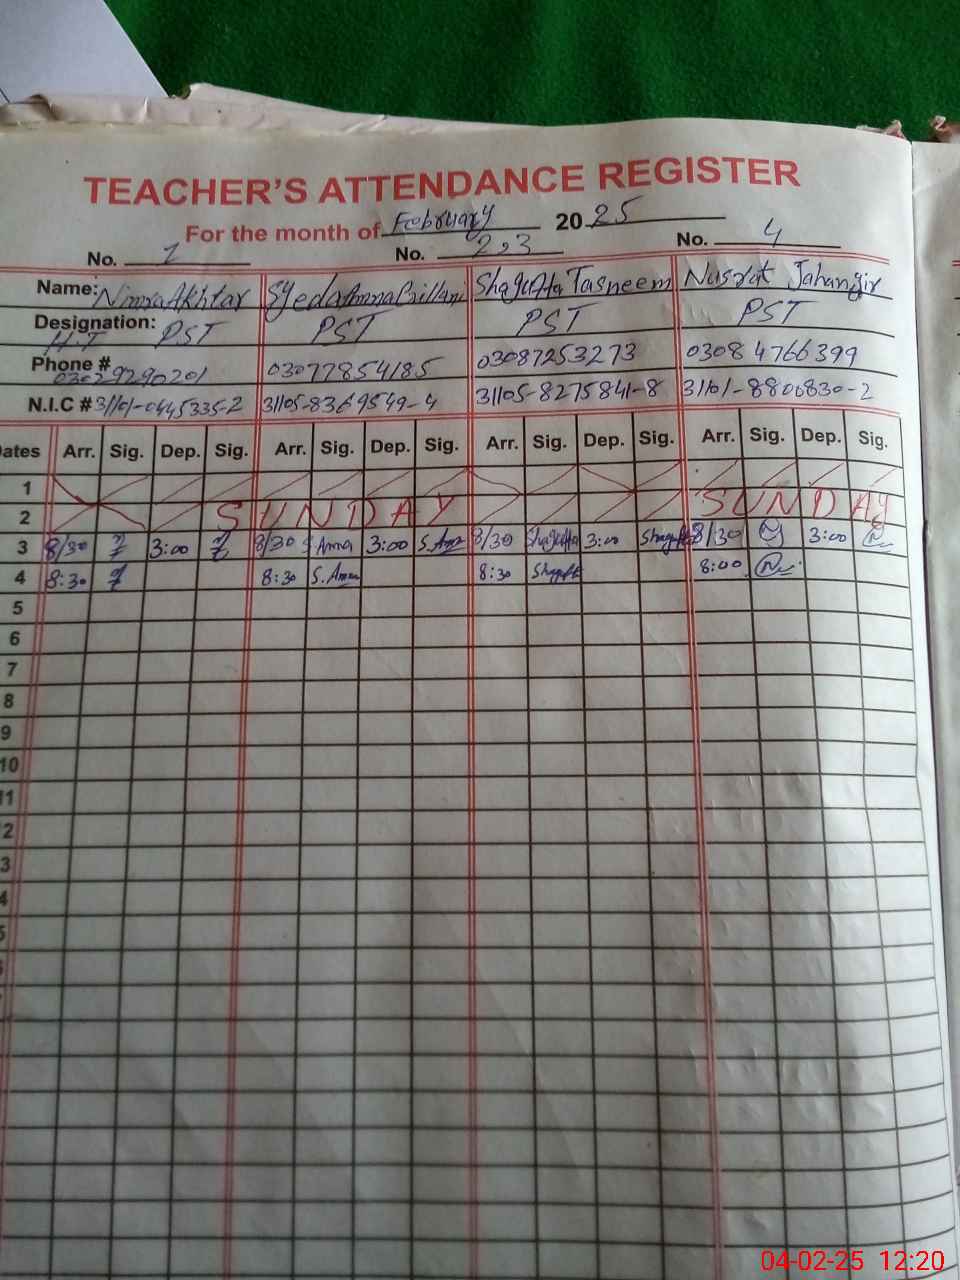 TEACHER'S ATTENDANCE REGISTER
For the month of February 2025
No. 1 No. 2,3 No. 4
Name: Nimra Akhtar Syeda Amna Gillani Shagufta Tasneem Nusrat Jahangir
Designation: H.T PST PST PST PST
Phone # 03029290201 03077854185 03087253273 03084766399
N.I.C # 31101-0445335-2 31105-8369549-4 31105-8275841-8 31101-8800830-2
Dates Arr. Sig. Dep. Sig. Arr. Sig. Dep. Sig. Arr. Sig. Dep. Sig. Arr. Sig. Dep. Sig.
1
2 SUNDAY SUNDAY
3 8/30 3:00 8/30 S.Amna 3:00 S.Amna 8/30 Shagufta 3:00 Shagufta 8/30 3:00
4 8:30 8:30 S.Amna 8:30 Shagufta 8:00
5
6
7
8
9
10
11
2
3
4
5
04-02-25 12:20